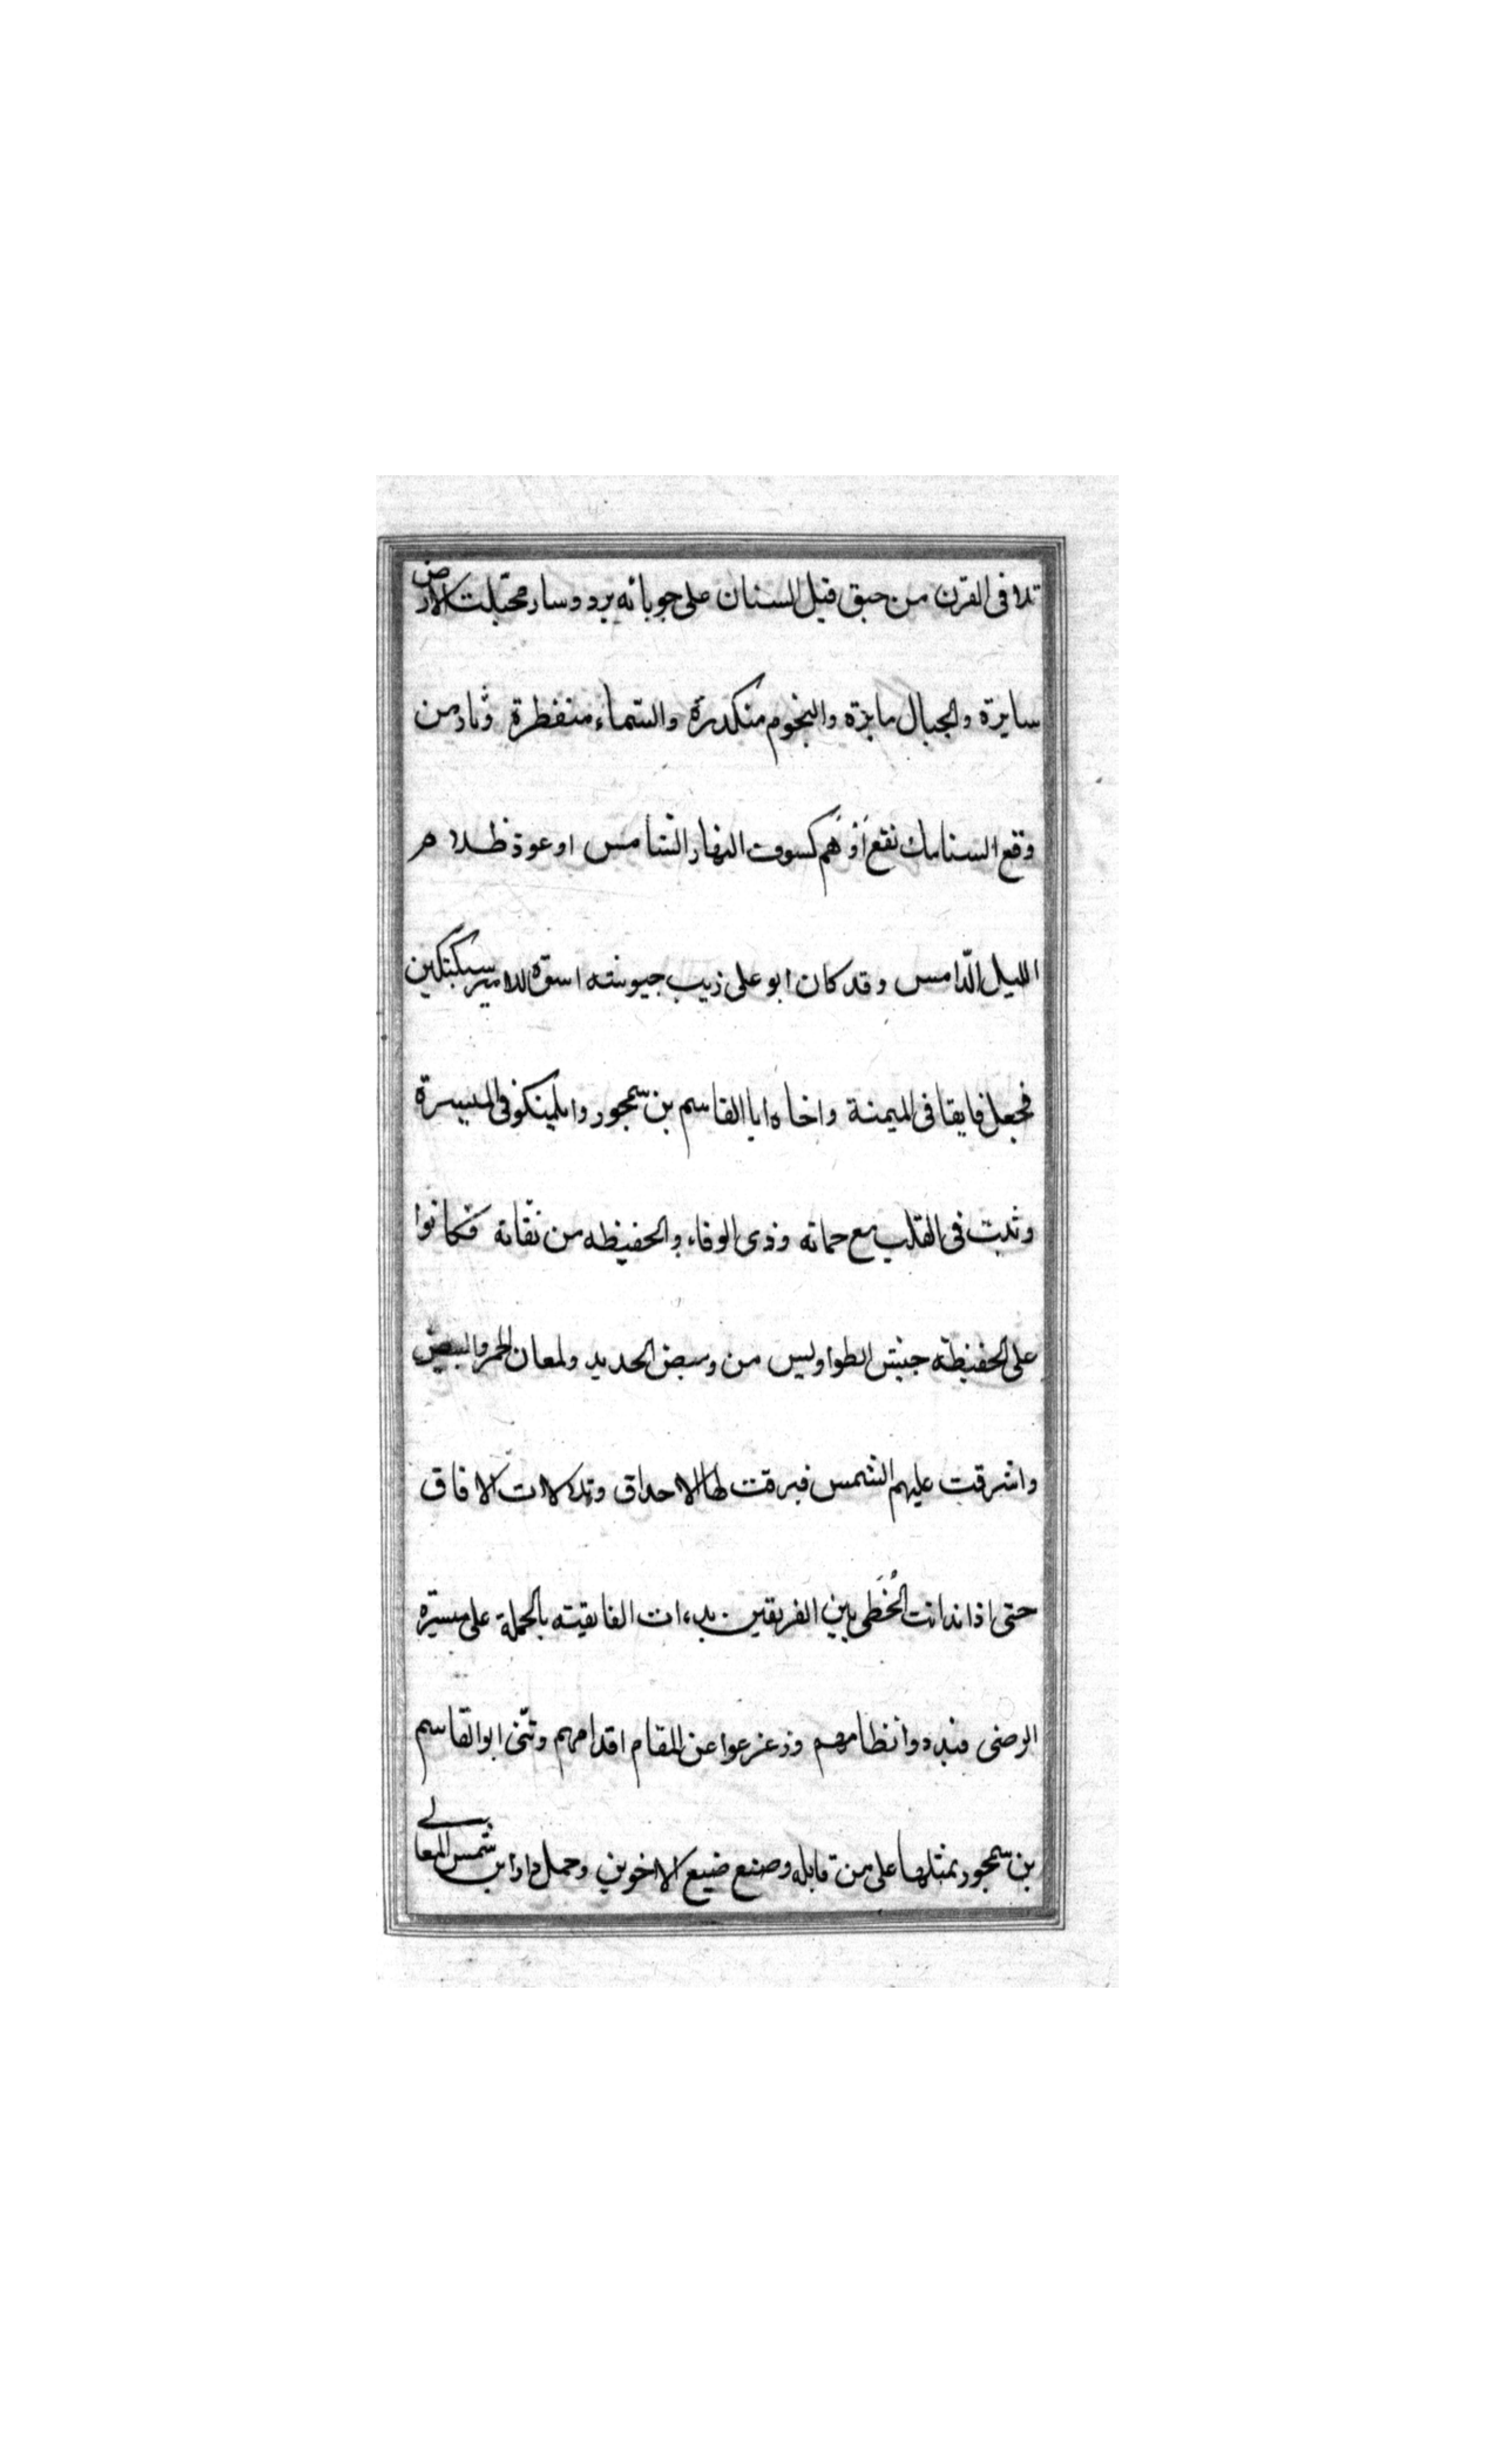 تلافى القرن من حبق قبل السنان على جوبانه يرد وسار محبلت الارض
سايرة والجبال مايرة والنجوم منكدرة والسماء منفطرة وثار من
وقع السنابك نقع أوهم كسوف النهار الشامس او عوذ ظلام
الليل الدامس وقد كان ابو على زيب جيوشه اسوة للامير سبكتكين
فجعل فايقا فى الميمنة واخاه ابا القاسم بن سمجور وايلمينكو فى الميسرة
وثبت فى القلب مع حماته وذوى الوفاء والحفيظه من ثقاته فكانوا
على الحفيظة جيش الطواويس من وبيض الحديد ولمعان الحمر والبيض
واشرقت عليهم الشمس فبرقت لها الاحداق وتلالات الافاق
حتى اذا تدانت الخطى بين الفريقين بدءات الفايقيه بالحملة على ميسرة
الرضى فبددوا نظامهم وزعزعوا عن المقام اقدامهم وثنى ابو القاسم
بن سمجور بمثلها على من قابله وصنع ضيع الاخوين وحمل دارا بن شمس المعالى